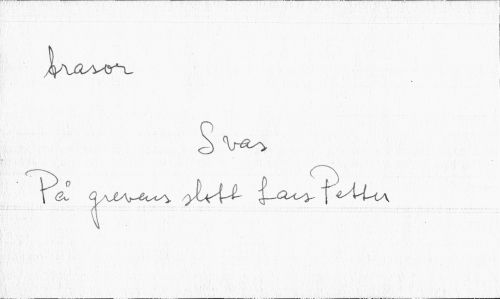 trasor
Svas
På grevens slott Lars Petter